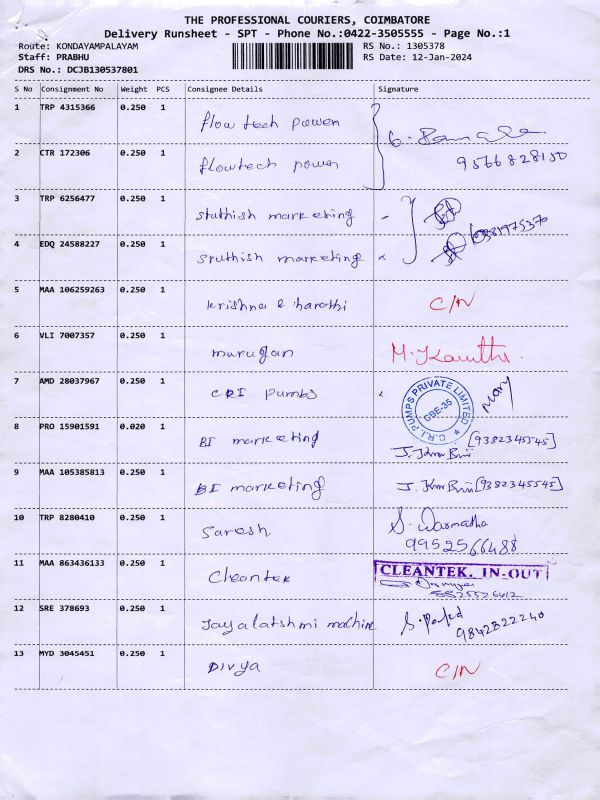 THE PROFESSIONAL COURIERS, COIMBATORE
Delivery Runsheet - SPT - Phone No.:0422-3505555 - Page No.:1
Route: KONDAYAMPALAYAM
RS No.: 1305378
Staff: PRABHU
RS Date: 12-Jan-2024
DRS No.: DCJB130537801
S No Consignment No Weight PCS Consignee Details Signature
1 TRP 4315366 0.250 1 flow tech power
2 CTR 172306 0.250 1 flowtech power 9566828150
3 TRP 6256477 0.250 1 sruthish marketing
4 EDQ 24588227 0.250 1 sruthish marketing
5 MAA 106259263 0.250 1 krishna & harathi C/N
6 VLI 7007357 0.250 1 murugan
7 AMD 28037967 0.250 1 CRI Pumps C.R.I. PUMPS PRIVATE LIMITED CBE-35 Mary
8 PRO 15901591 0.020 1 BI marketing [9382345545]
9 MAA 105385813 0.250 1 BI marketing [9382345545]
10 TRP 8280410 0.250 1 Saresh 9952566488
11 MAA 863436133 0.250 1 Cleantek CLEANTEK. IN-OUT
12 SRE 378693 0.250 1 Jayalatshmi machine 9842822240
13 MYD 3045451 0.250 1 Divya C/N